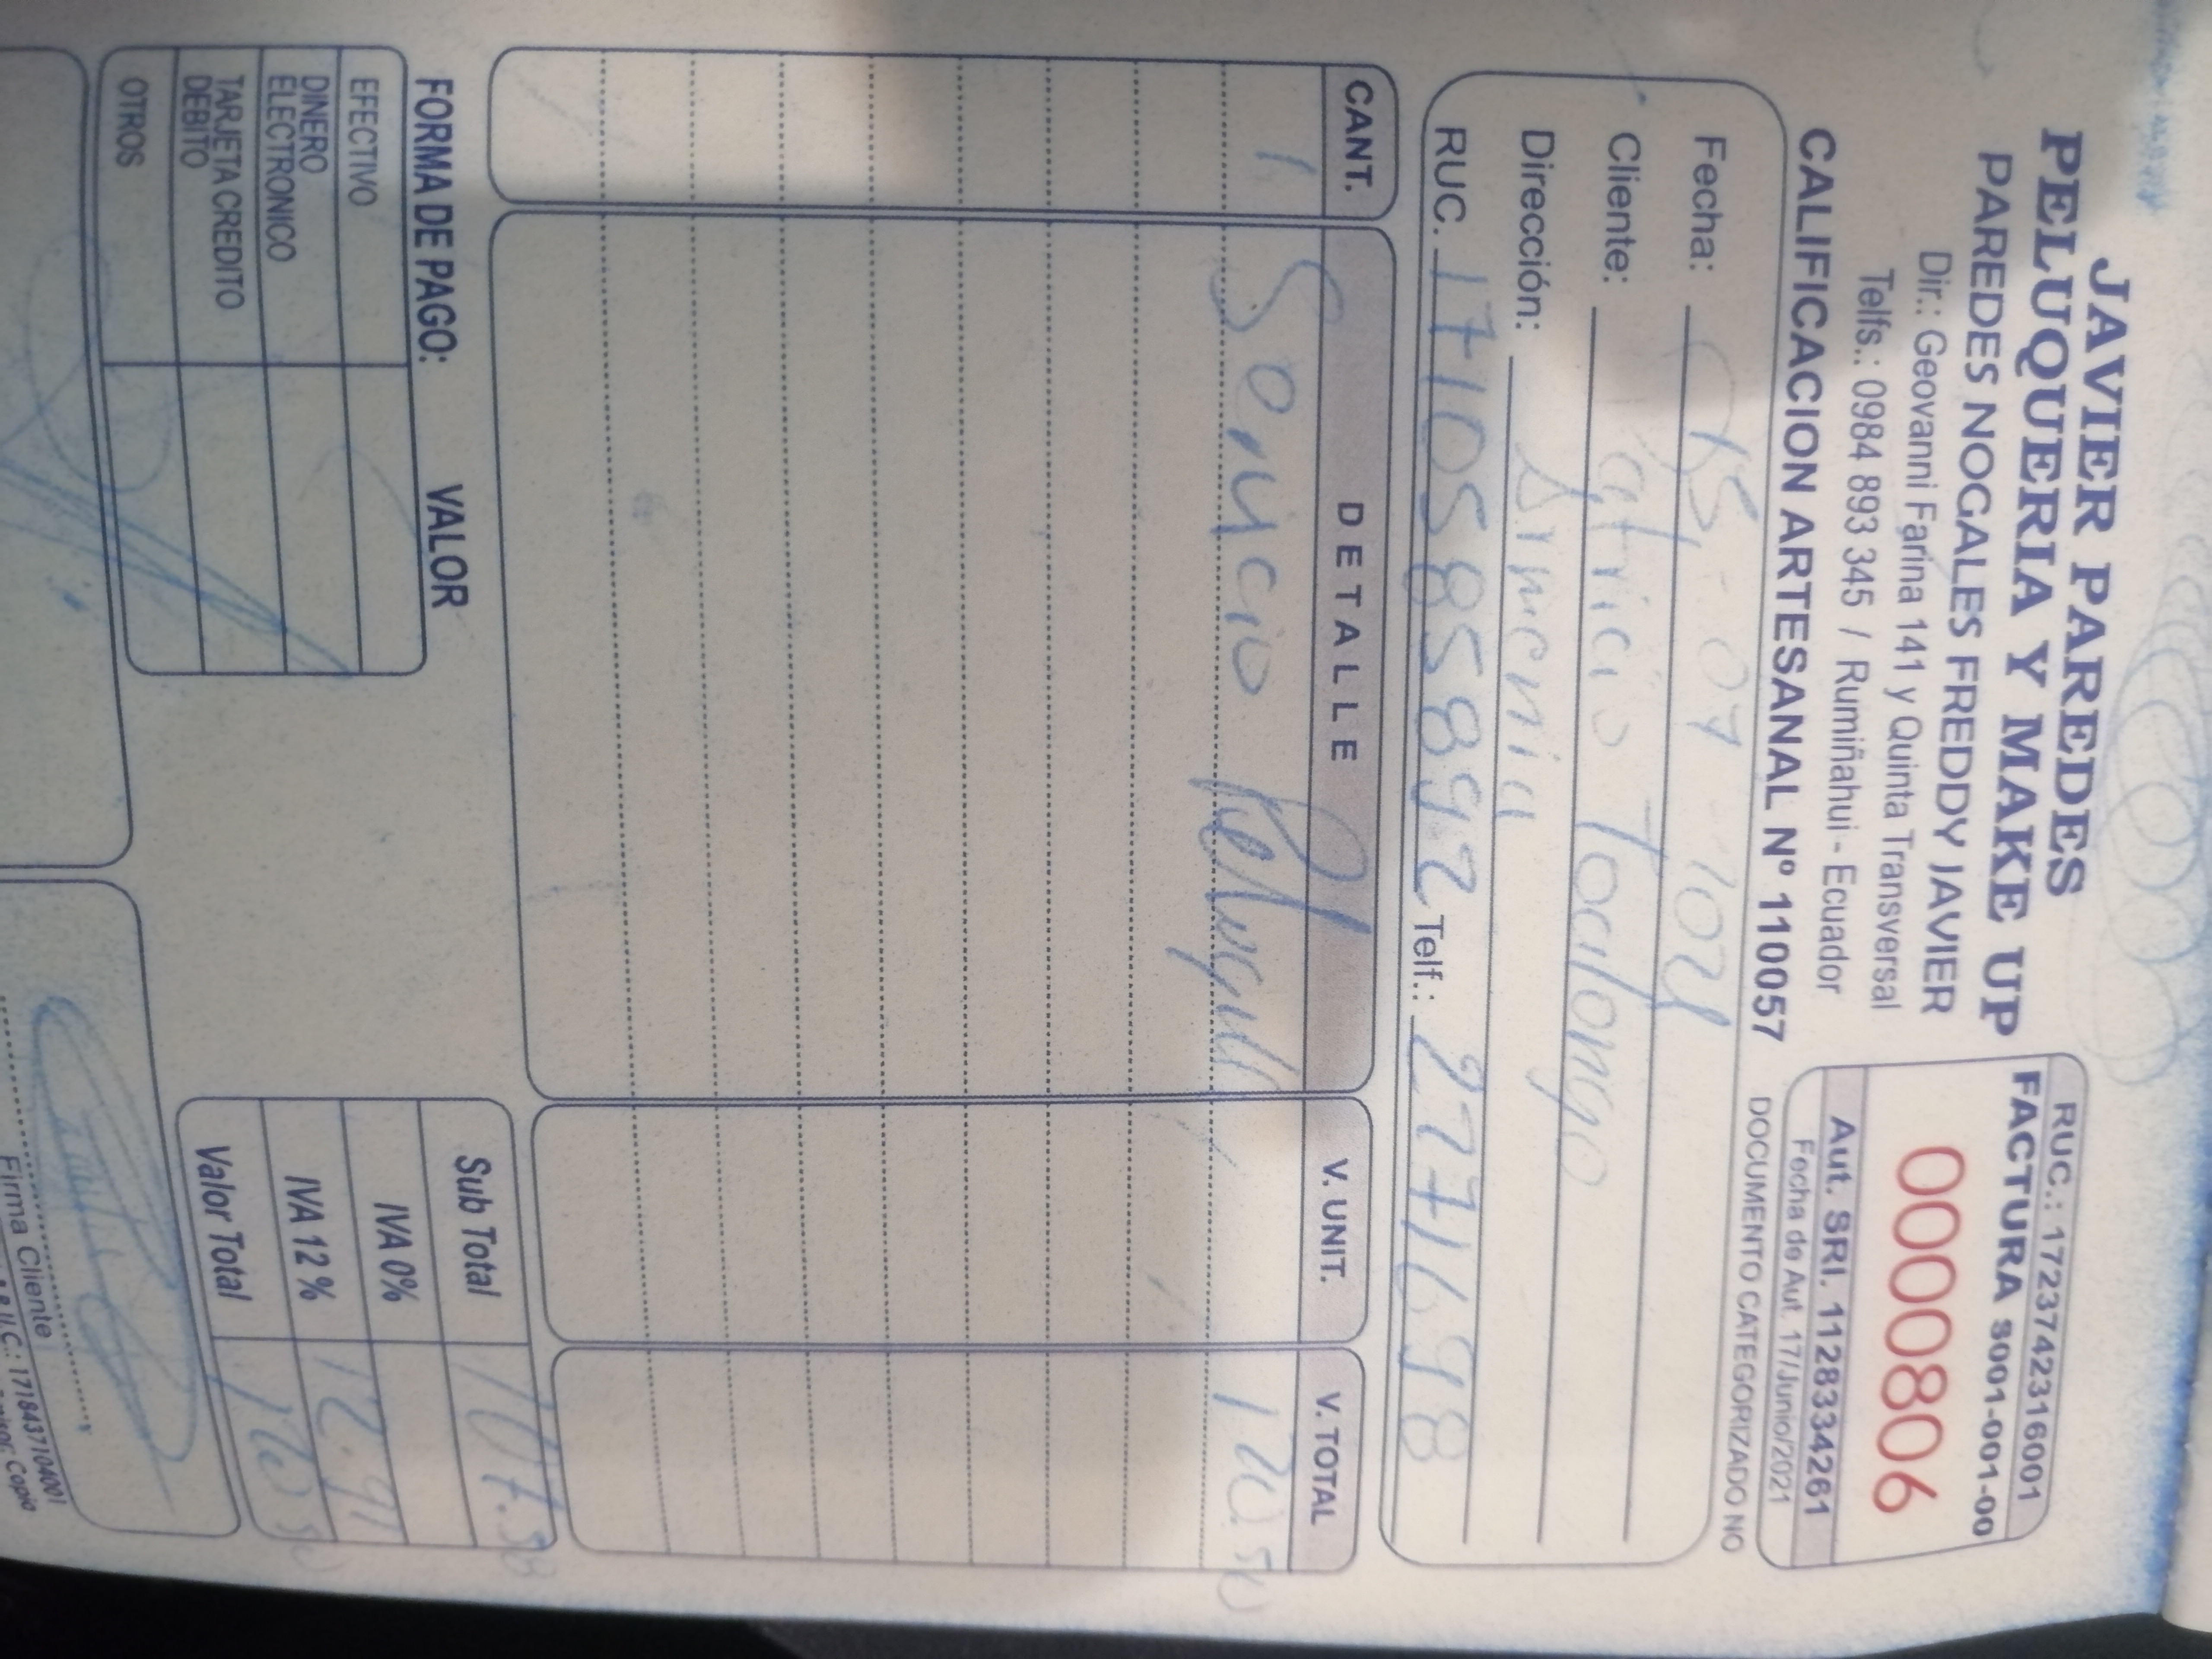 JAVIER PAREDES
PELUQUERIA Y MAKE UP
PAREDES NOGALES FREDDY JAVIER
Dir.: Geovanni Farina 141 y Quinta Transversal
Telfs.: 0984 893 345 / Rumiñahui - Ecuador
CALIFICACION ARTESANAL Nº 110057
RUC.: 1723742316001
FACTURA S001-001-00
0000806
Aut. SRI. 1128334261
Fecha de Aut. 17/Junio/2021
DOCUMENTO CATEGORIZADO NO
Fecha:
Cliente: Toalongo
Dirección: Armenia
RUC. 1710585892 Telf.: 2771698
CANT. DETALLE V. UNIT. V. TOTAL
1 Servicio
FORMA DE PAGO: VALOR
EFECTIVO
DINERO ELECTRONICO
TARJETA CREDITO DEBITO
OTROS
Sub Total
IVA 0%
IVA 12 % 12.91
Valor Total
Firma Cliente
R.U.C.: 1718437104001
Copia